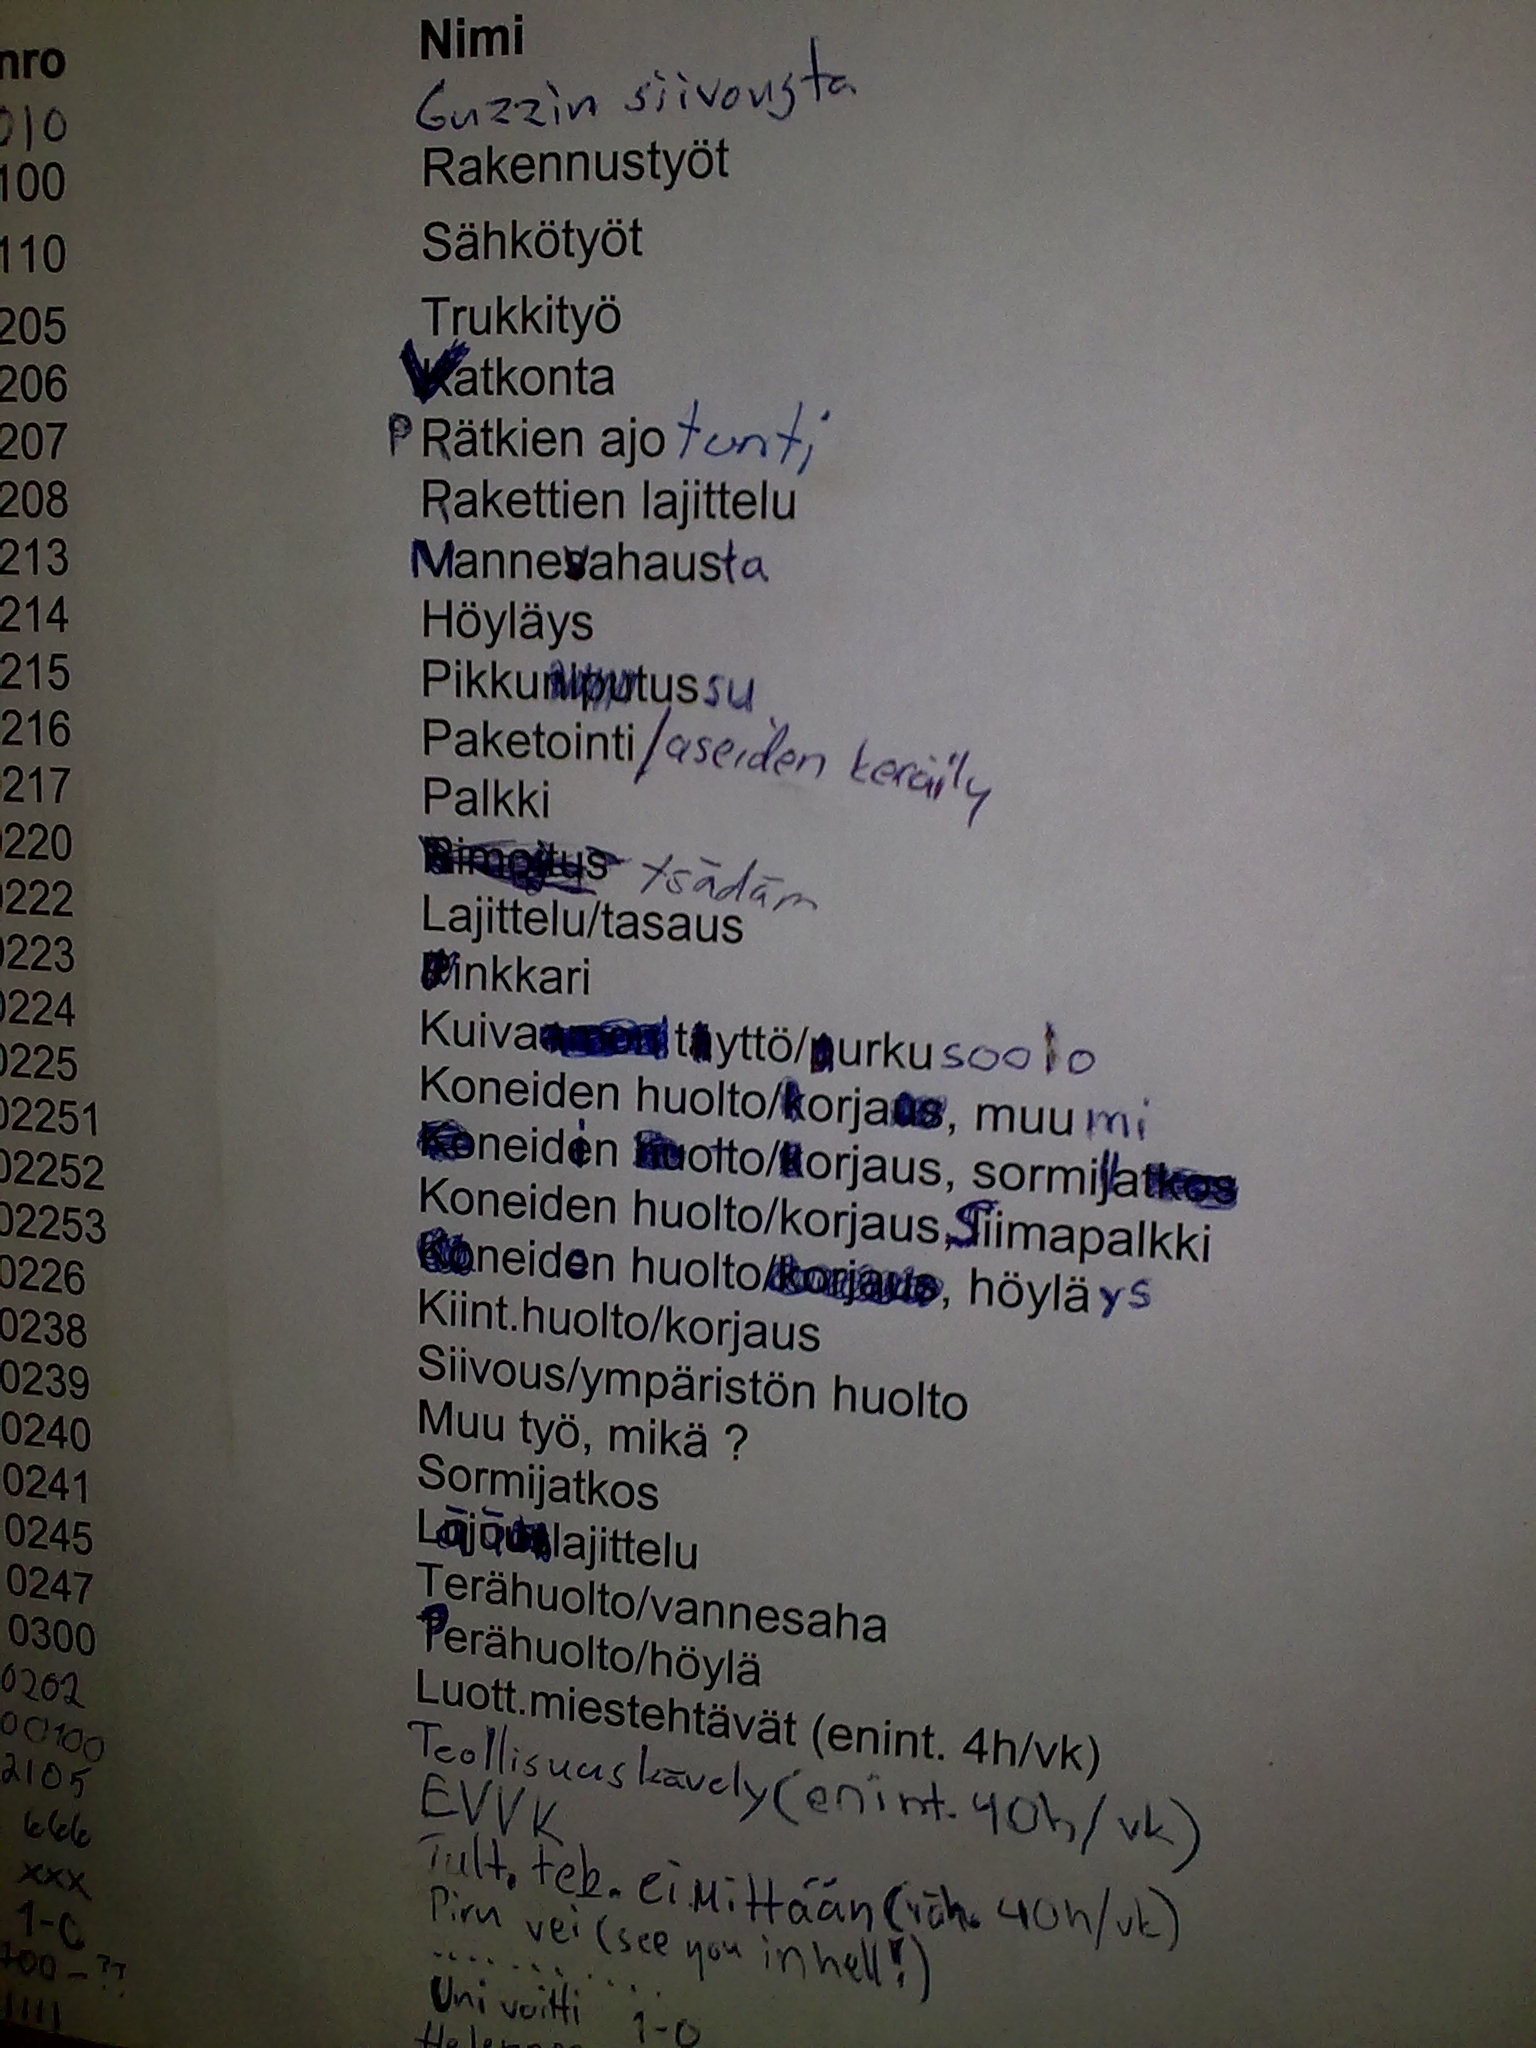 nro Nimi
010 Guzzin siivousta
100 Rakennustyöt
110 Sähkötyöt
205 Trukkityö
206 Vatkonta
207 P Rätkien ajo tunti
208 Rakettien lajittelu
213 Mannesvahausta
214 Höyläys
215 Pikku putus su
216 Paketointi/aseiden keräily
217 Palkki
0220 Rimoitus tsädäm
0222 Lajittelu/tasaus
0223 inkkari
0224 Kuiva tyttö/urku soolo
0225 Koneiden huolto/korja, muu mi
02251 oneidin uolto/korjaus, sormillat
02252 Koneiden huolto/korjaus, Siimapalkki
02253 neiden huolto/, höylä ys
0226 Kiint.huolto/korjaus
0238 Siivous/ympäristön huolto
0239 Muu työ, mikä ?
0240 Sormijatkos
0241 lajittelu
0245 Terähuolto/vannesaha
0247 Perähuolto/höylä
0300 Luott.miestehtävät (enint. 4h/vk)
0202 Teollisuuskävely (enint. 40h/vk)
00100 EVVK
2105 Tult. teh. ei mittään (väh. 40h/vk)
666 Piru vei (see you in hell!)
xxx ..........
1-0 Uni voitti 1-0
700-??
1111